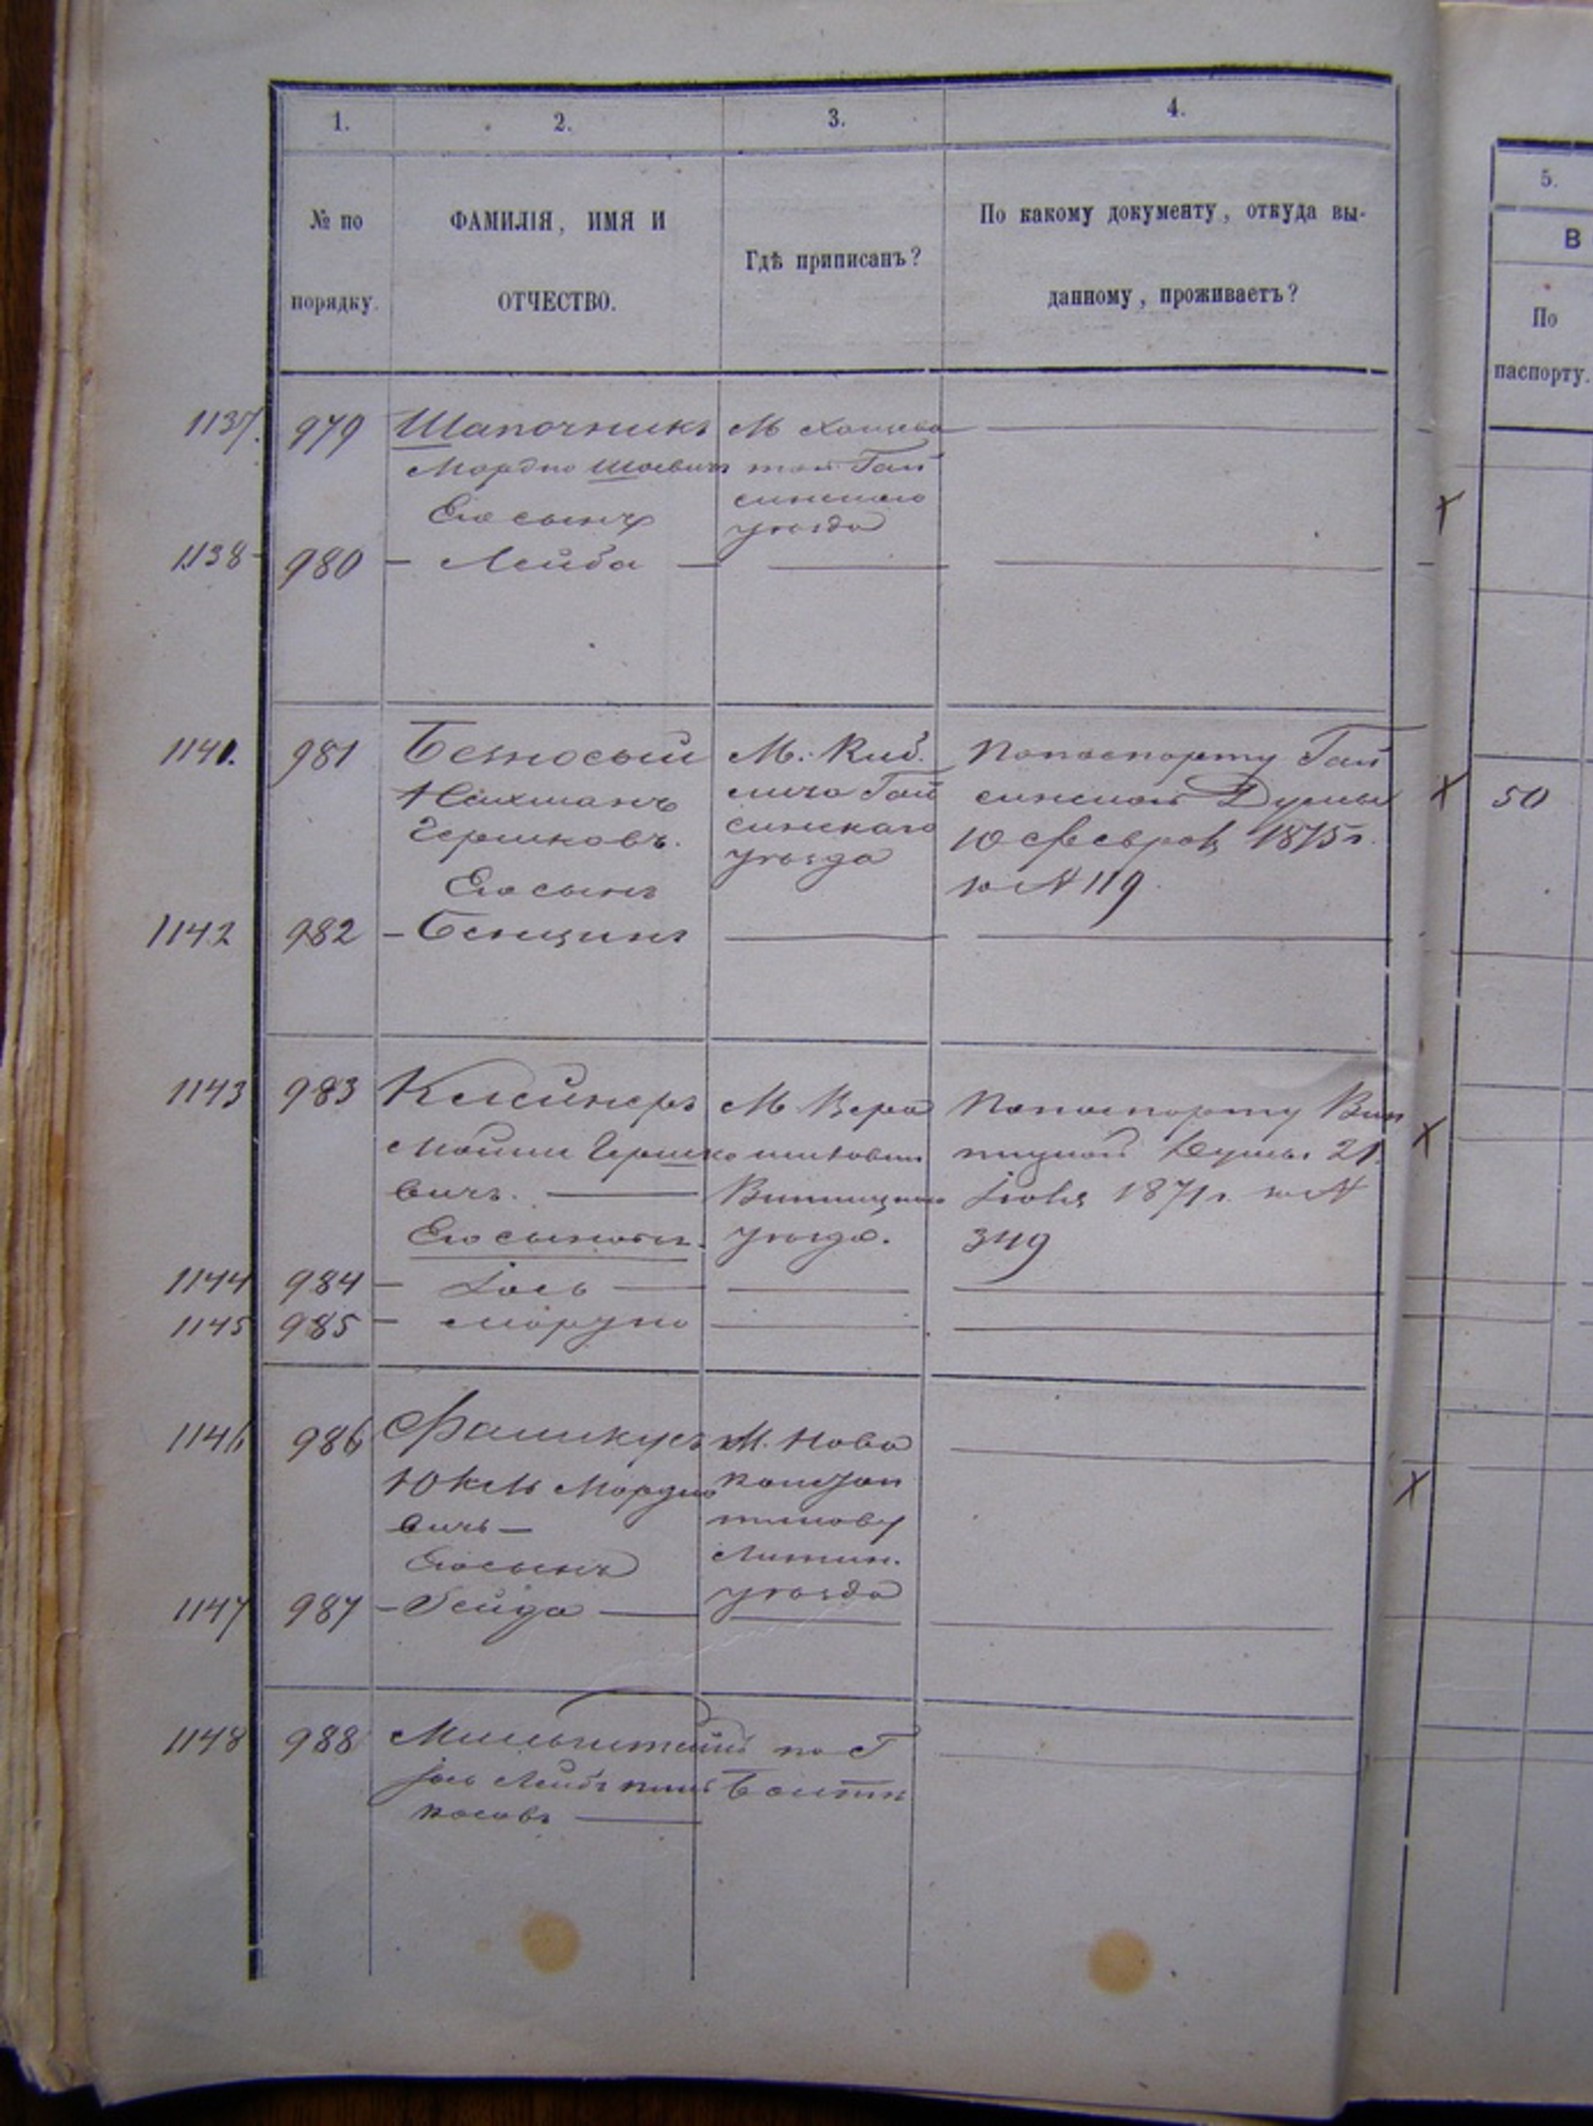 1. 2. 3. 4.
№ по порядку.
ФАМИЛІЯ, ИМЯ И
ОТЧЕСТВО.
Гдѣ приписанъ?
По какому документу, откуда вы-
данному, проживаетъ?
5.
В
По
паспорту.
1137. 979 Шапочникъ
Мордко Шоевичъ
Его сынъ
М Хощева
той Гай
синскаго
уѣзда
1138 980 – Лейба –
1141. 981 Безносый
Нахманъ
Гершковъ.
Его сынъ
М. Киб.
лича Гай
синскаго
уѣзда
По паспорту Гай
синской Думы
10 Февраля 1875 г.
за № 119
50
1142 982 – Бенционъ
1143 983 Клейнеръ
Мошко Гершко
вичъ. –
Его сыновья.
М
Винницкаго
уѣзда.
По паспорту Вин
ницкой Думы 21
Іюля 1871 г. за №
349
1144 984 – Іось –
1145 985 – Мордко
1146 986
Юкель Мордко
вичъ –
Его сынъ
М. Ново
констан
тинову
Литин.
уѣзда
1147 987 – Зейда –
1148 988
Іось Лейбъ
по Г
Балта